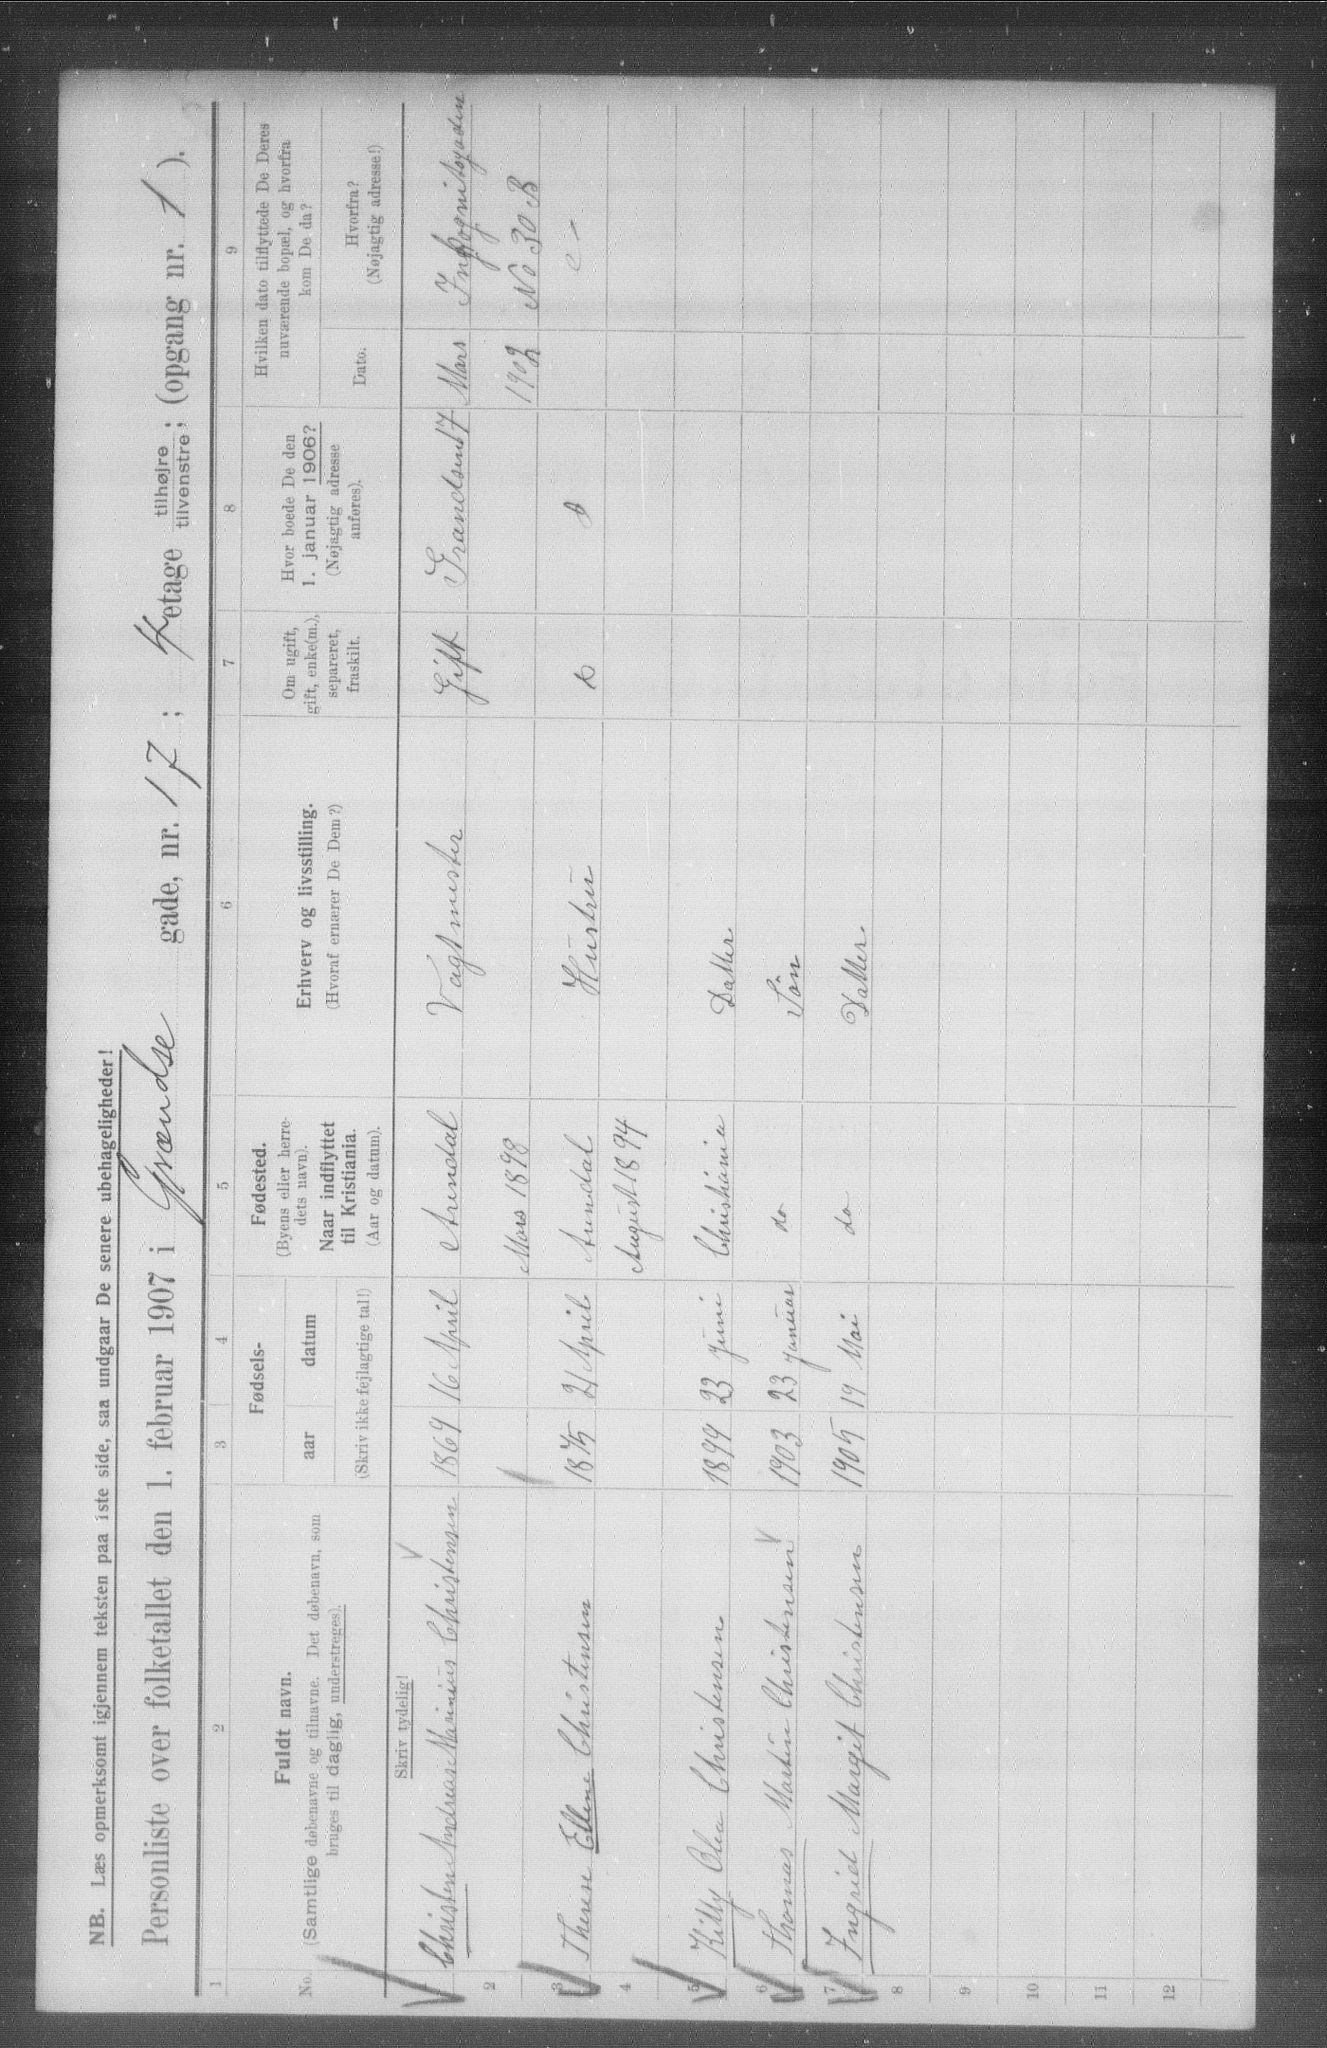 NB. Læs opmerksomt igjennem teksten paa 1ste side, saa undgaar De senere ubehageligheder!
Personliste over folketallet den 1. februar 1907 i Grændse gade, nr. 17; 4 etage tilhøjre; tilvenstre; (opgang nr. 1).
1 2 3 4 5 6 7 8 9
No.
Fuldt navn.
(Samtlige døbenavne og tilnavne. Det døbenavn, som
bruges til daglig, understreges).
Fødsels-
aar datum
(Skriv ikke fejlagtige tal!)
Fødested.
(Byens eller herre-
dets navn).
Naar indflyttet
til Kristiania.
(Aar og datum).
Erhverv og livsstilling.
(Hvoraf ernærer De Dem?)
Om ugift,
gift, enke(m.),
separeret,
fraskilt.
Hvor boede De den
1. januar 1906?
(Nøjagtig adresse
anføres).
Hvilken dato tilflyttede De Deres
nuværende bopæl, og hvorfra
kom De da?
Dato.
Hvorfra?
(Nøjagtig adresse!)
Skriv tydelig!
1 Christen Andreas Marinius Christensen 1869 16 April Arendal Vagtmester Gift Grændsen 17 Mars Inkognitogaden
2 Mars 1898 1902 No 30 B
3 Therese Elene Christensen 1875 21 April Arendal Hustru do
4 August 1894
5 Killy Olea Christensen 1899 23 Juni Christiania Datter
6 Thomas Martin Christensen 1903 23 Januar do Sön
7 Ingrid Margit Christensen 1905 19 Mai do Datter
8
9
10
11
12